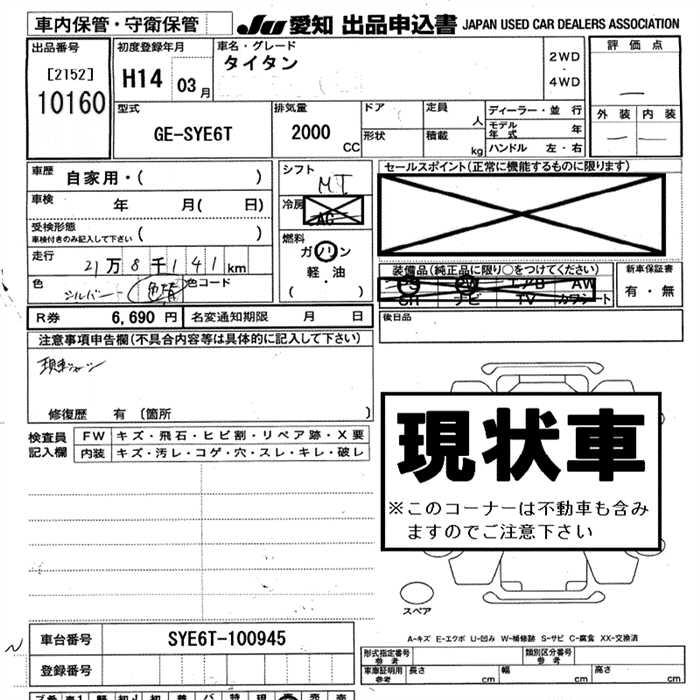 車内保管・守衛保管
JU 愛知 出品申込書 JAPAN USED CAR DEALERS ASSOCIATION
出品番号
[2152]
10160
初度登録年月
H14 03月
車名・グレード
タイタン
2WD
・
4WD
評価点
外装 内装
型式
GE-SYE6T
排気量
2000 CC
ドア
形状
定員 人
積載 kg
ディーラー・並行
モデル年式 年
ハンドル 左・右
車歴 自家用・( )
車検 年 月( 日)
受検形態
車検付きのみ記入して下さい ( )
走行 21万8千141km
色 シルバー 色替 色コード
シフト MT
冷房 AC
燃料
ガソリン
軽・油
( )
セールスポイント(正常に機能するものに限ります)
装備品(純正品に限り○をつけてください)
PS PW エアB AW
SR ナビ TV カワシート
新車保証書
有・無
R券 6,690円 名変通知期限 月 日
後日品
注意事項申告欄(不具合内容等は具体的に記入して下さい)
修復歴 有 〔箇所 〕
検査員記入欄
FW キズ・飛石・ヒビ割・リペア跡・X要
内装 キズ・汚レ・コゲ・穴・スレ・キレ・破レ
現状車
※このコーナーは不動車も含み
ますのでご注意下さい
スペア
A-キズ E-エクボ U-凹み W-補修跡 S-サビ C-腐食 XX-交換済
車台番号 SYE6T-100945
登録番号
型式指定番号 参考
類別区分番号 参考
車庫証明用 参考 長さ cm 幅 cm 高さ cm